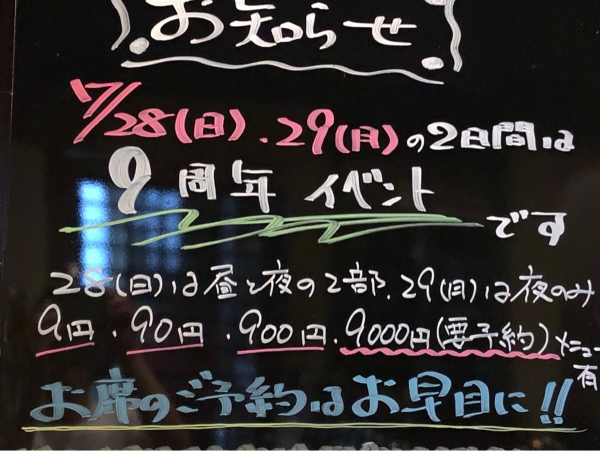 お知らせ
7/28(日).29(月)の2日間は
9周年イベント
です
28(日)は昼と夜の2部、29(月)は夜のみ
9円・90円・900円・9000円(要予約)メニュー有
お席のご予約はお早目に!!